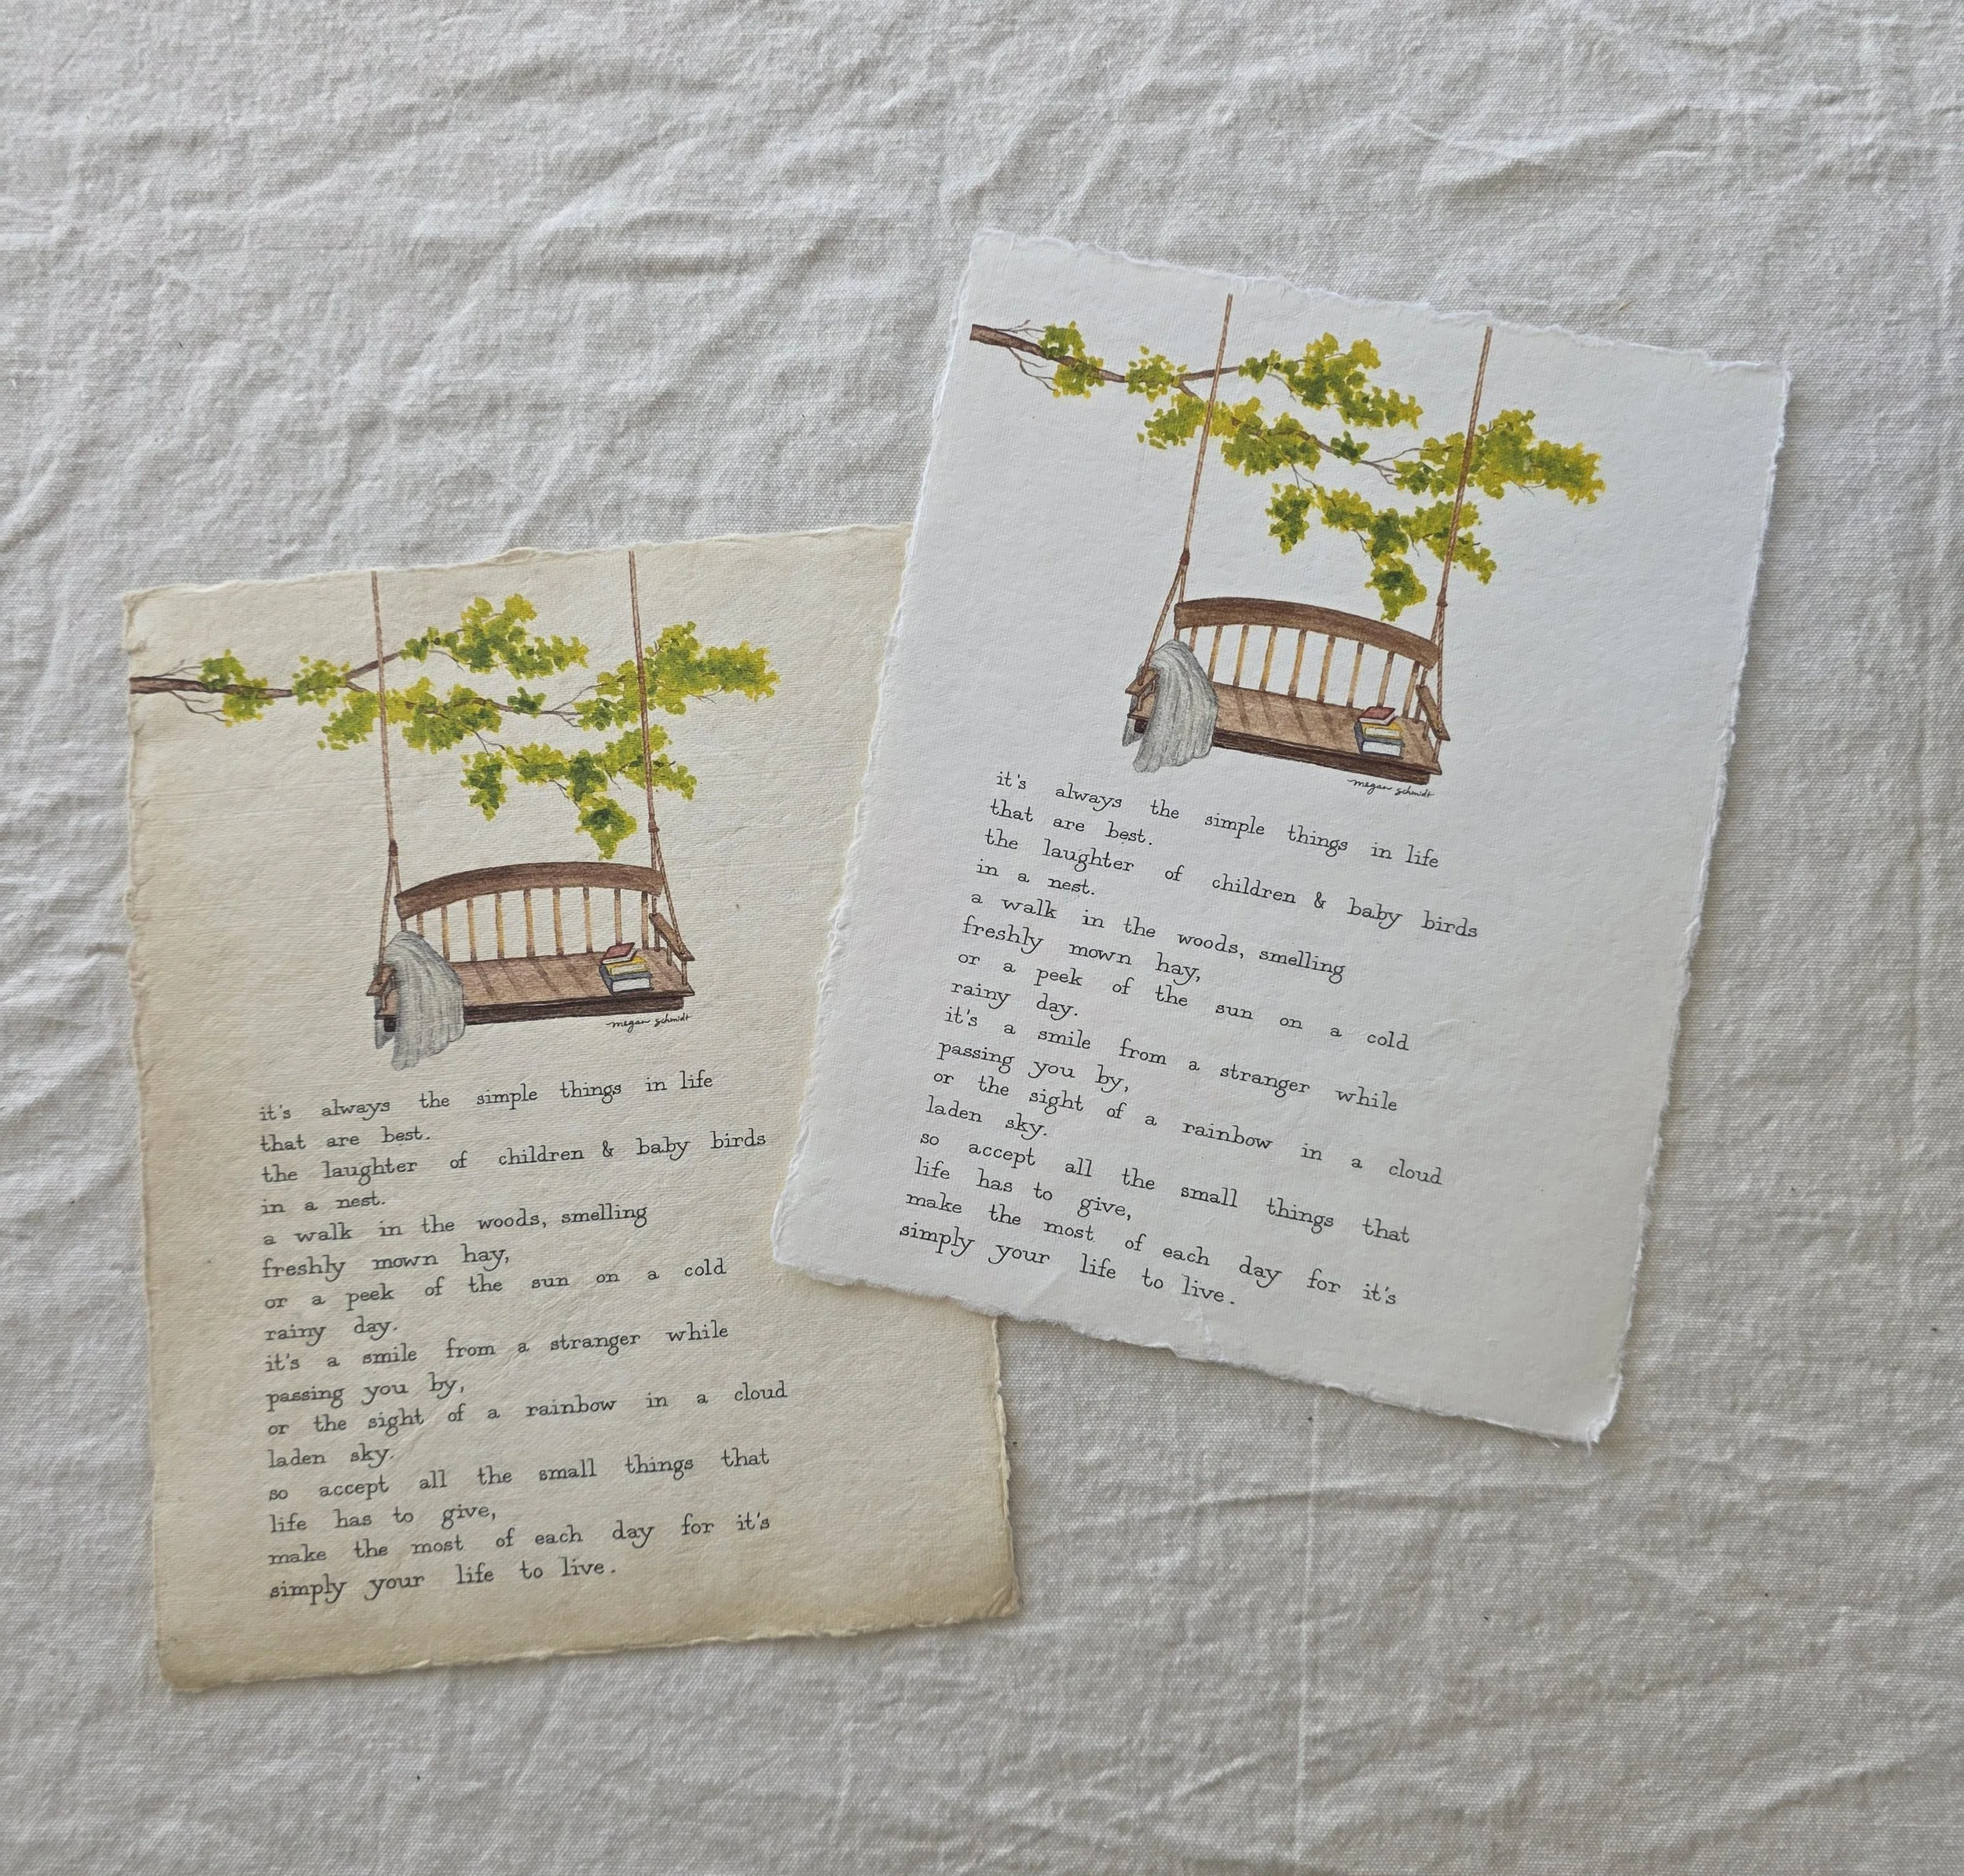 megan schmidt
it's always the simple things in life
that are best.
the laughter of children & baby birds
in a nest.
a walk in the woods, smelling
freshly mown hay,
or a peek of the sun on a cold
rainy day.
it's a smile from a stranger while
passing you by,
or the sight of a rainbow in a cloud
laden sky.
so accept all the small things that
life has to give,
make the most of each day for it's
simply your life to live.
megan schmidt
it's always the simple things in life
that are best.
the laughter of children & baby birds
in a nest.
a walk in the woods, smelling
freshly mown hay,
or a peek of the sun on a cold
rainy day.
it's a smile from a stranger while
passing you by,
or the sight of a rainbow in a cloud
laden sky.
so accept all the small things that
life has to give,
make the most of each day for it's
simply your life to live.